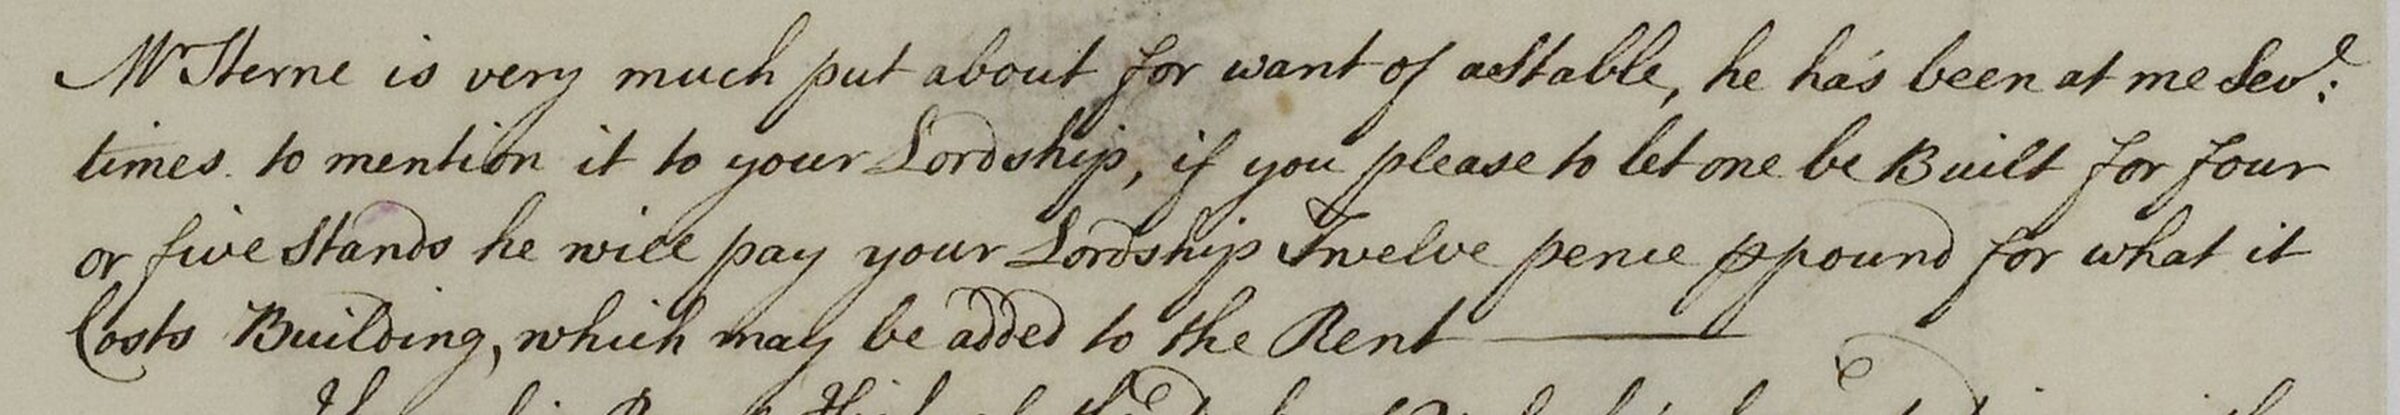 Mr Sterne is very much put about for want of a Stable, he has been at me Sevl:
times to mention it to your Lordship, if you please to let one be Built for four
or five Stands he will pay your Lordship Twelve pence p pound for what it
Costs Building, which may be added to the Rent